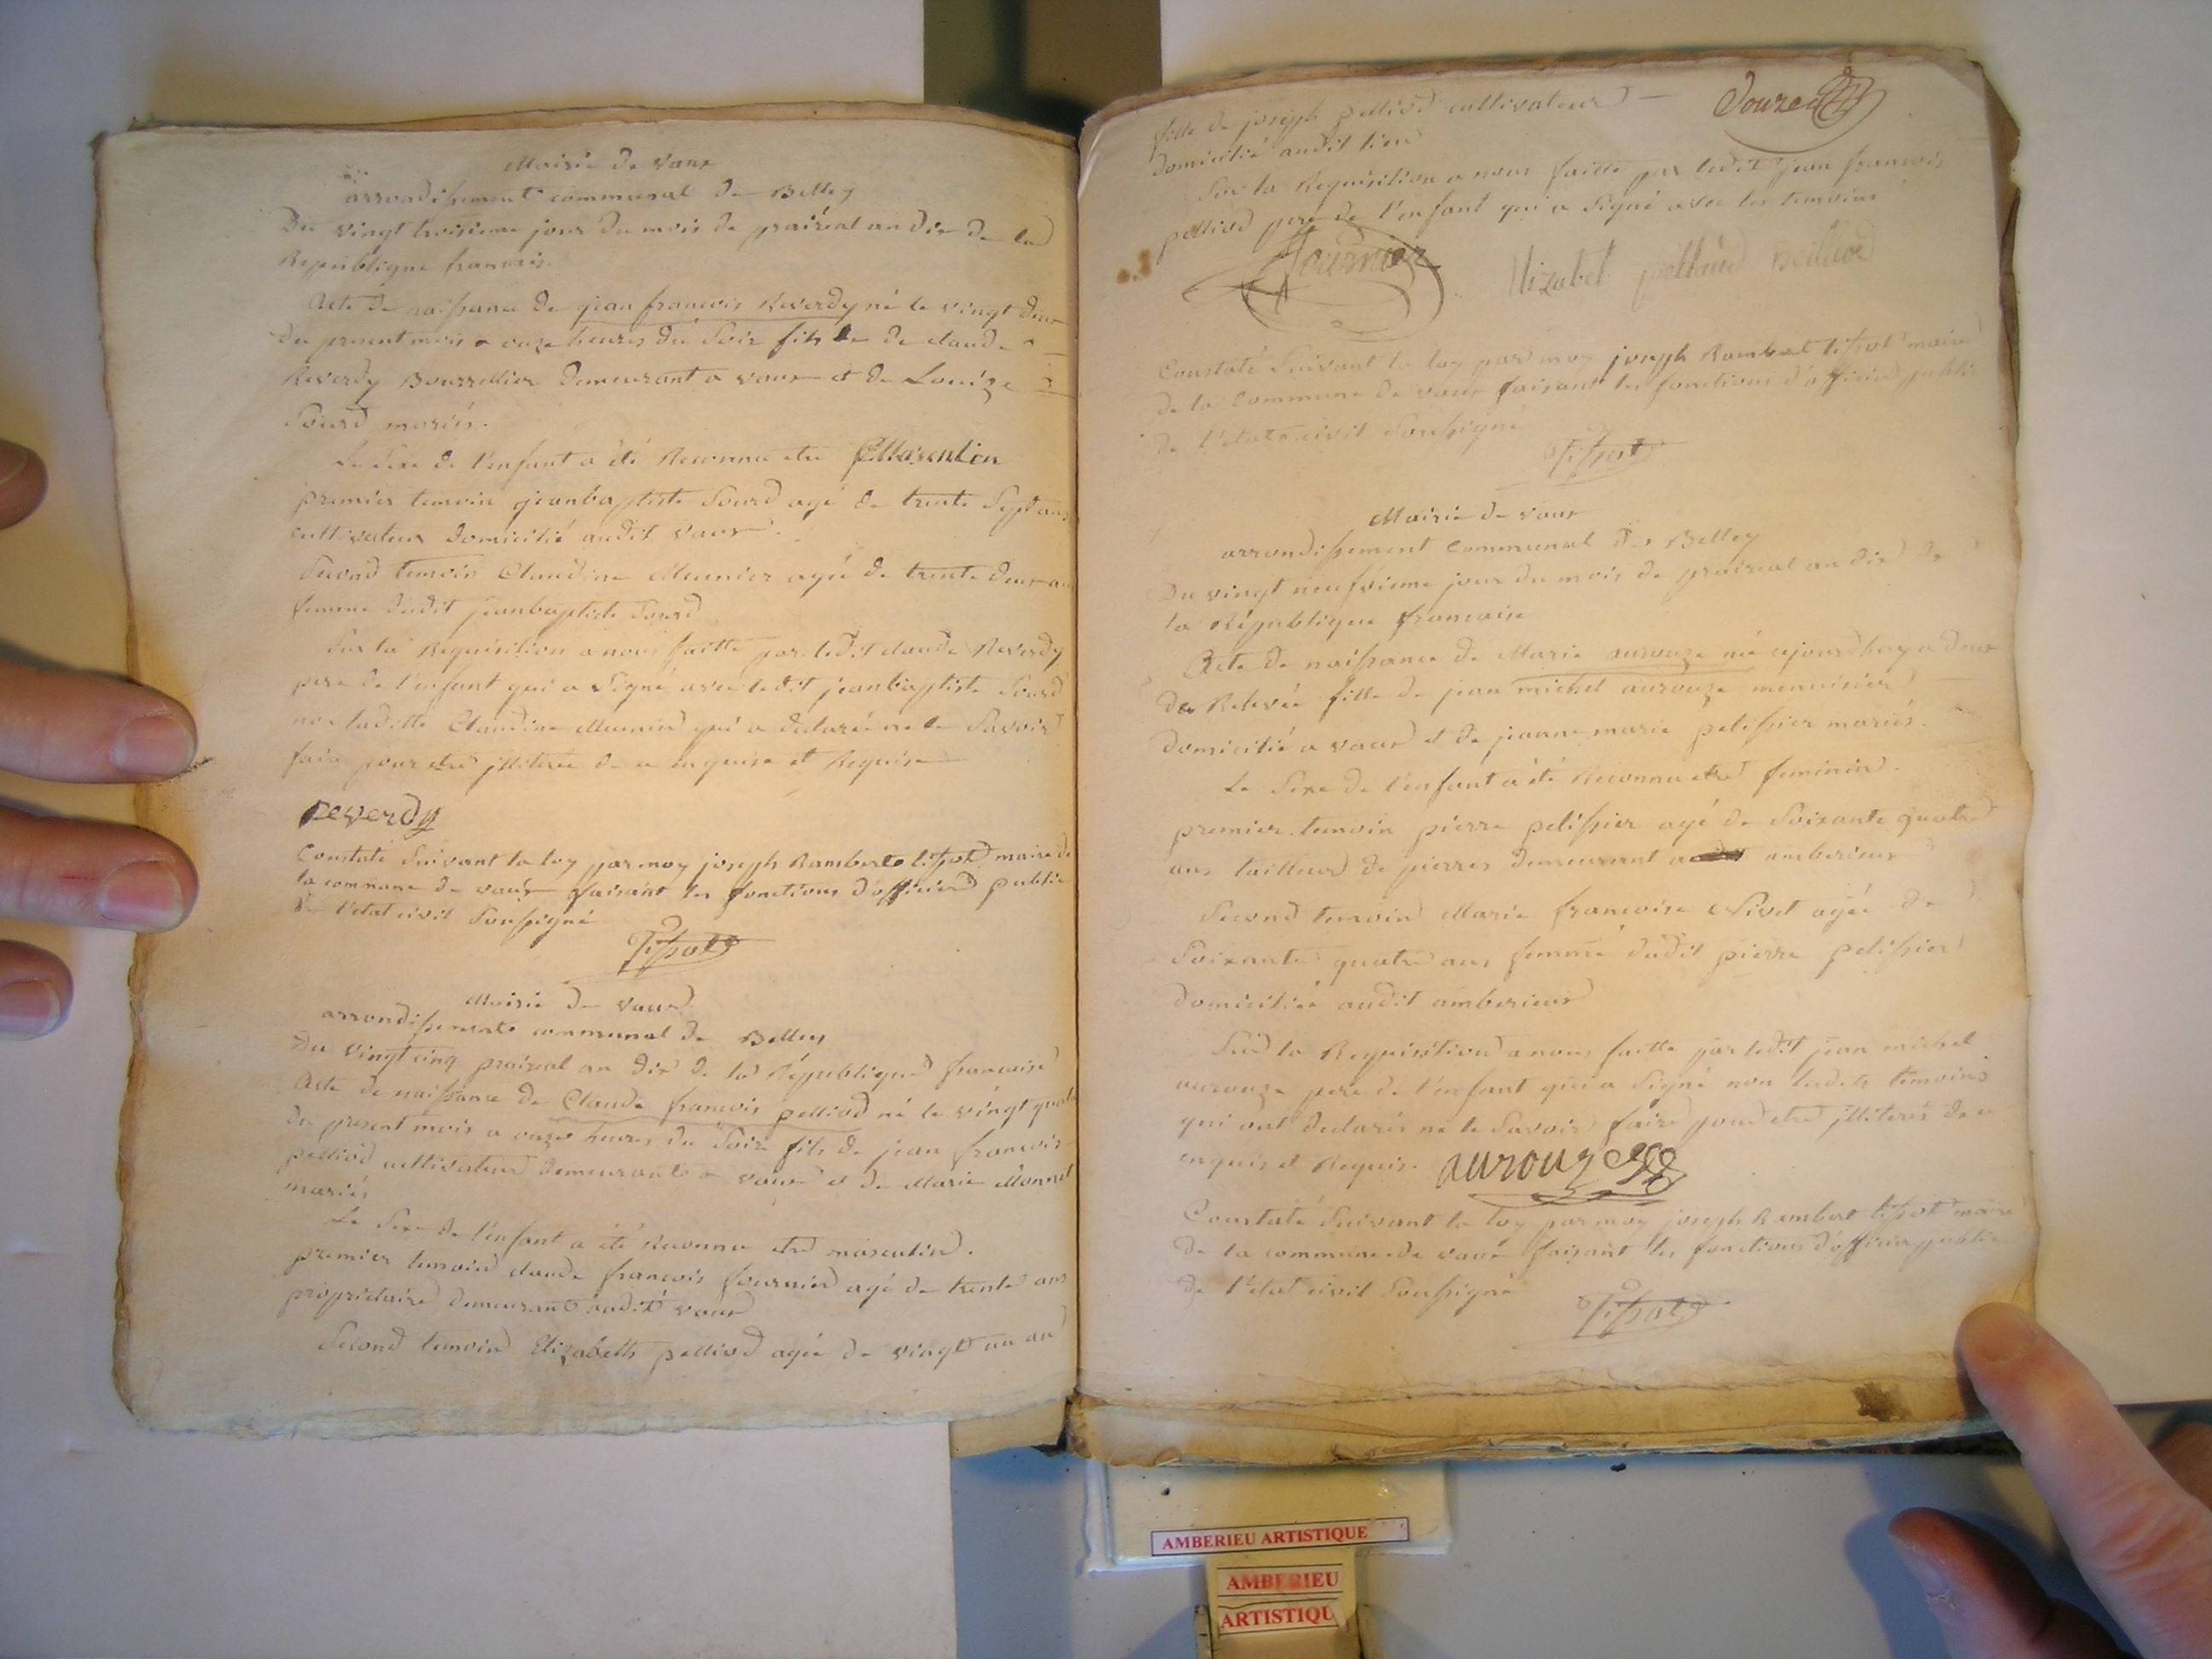 Mairie de vaux
arrondissement communal de Belley
Du vingt troisieme jour du mois de prairéal an dix de la
Republique francais.
Acte de naissance de jean francois Reverdy né le vingt deux
du present mois a onze heures du Soir fils de claude
Reverdy Bourrellier demeurant a vaux et de Louize
Sourd mariés.
Le Sexe de l'enfant a été Reconnu etre
premier temoin jeanbaptiste Sourd agé de trente Sept ans
cultivateur domicilié audit vaux.
Second temoin Claudine Meunier agée de trente deux ans
femme dudit jeanbaptiste Sourd
Sur la Requisition a nous faitte par ledit claude Reverdy
pere de l'enfant qui a Signé avec ledit jeanbaptiste Sourd
non laditte Claudine Meunier qui a declaré ne le Savoir
faire pour etre illiterée de ce enquise et Requise
reverdy
Constaté Suivant la loy par moy joseph Rambert tissot maire de
la commune de vaux faisant les fonctions d'officier public
de l'etat civil Soussigné
Tissot
Mairie de vaux
arrondissement communal de Belley
Du vingt cinq prairéal an dix de la République francaise
Acte de naissance de Claude francois pelliod né le vingt quatre
du present mois a onze heures du Soir fils de jean francois
pelliod cultivateur demeurant a vaux et de Marie Monnet
mariés
Le Sexe de l'enfant a été Reconnu etre masculin.
premier temoin claude francois fournier agé de trente ans
propriétaire demeurant audit vaux
Second temoin Elizabeth pelliod agée de vingt un an
fille de joseph pelliod cultivateur
domicilié audit lieu
Douze
Sur la Requisition a nous faitte par ledit jean francois
pelliod pere de l'enfant qui a Signé avec les temoins
fournier Elizabet peilliod
Constaté Suivant la loy par moy joseph Rambert tissot maire
de la Commune de vaux faisant les fonctions d'officier public
de l'etat civil Soussigné
Tissot
Mairie de vaux
arrondissement Communal de Belley
Du vingt neufvieme jour du mois de prairéal an dix de
la République francaise
Acte de naissance de Marie aurouze né ajourdhuy a deux
de Relevée fille de jean michel aurouze menuisier
domicilié a vaux et de jeanne marie pelissier mariés.
Le Sexe de l'enfant a été Reconnu etre feminin.
premier temoin pierre pelissier agé de Soixante quatre
ans tailleur de pierres demeurant a amberieux
Second temoin Marie francoise Nivet agée de
Soixante quatre ans femme dudit pierre pelissier
domiciliée audit amberieux
Sur la Requisition a nous faitte par ledit jean michel
aurouze pere de l'enfant qui a Signé non lesdits temoins
qui ont declarés ne le Savoir faire pour etre illiterés de ce
enquis et Requis. aurouze
Constaté Suivant la loy par moy joseph Rambert tissot maire
de la commune de vaux faisant les fonctions d'officier public
de l'etat civil Soussigné
Tissot
AMBERIEU ARTISTIQUE
AMBERIEU
ARTISTIQU